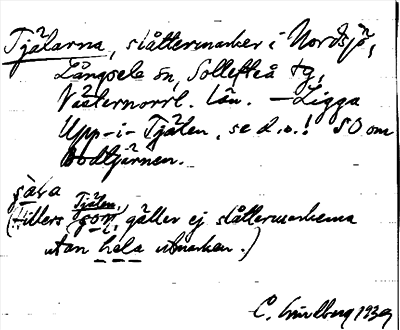 Tjälarna, slåttermarker i Nordsjö,
Långsele sn, Sollefteå tg,
Västernorrl. län. — Ligga
Upp-i-Tjälen, se d.o.! SO om
Bodtjärnen.
(Tillers Tjälen, gäller ej slåttermarkerna
utan hela utmarken.)
C. Lindberg 193